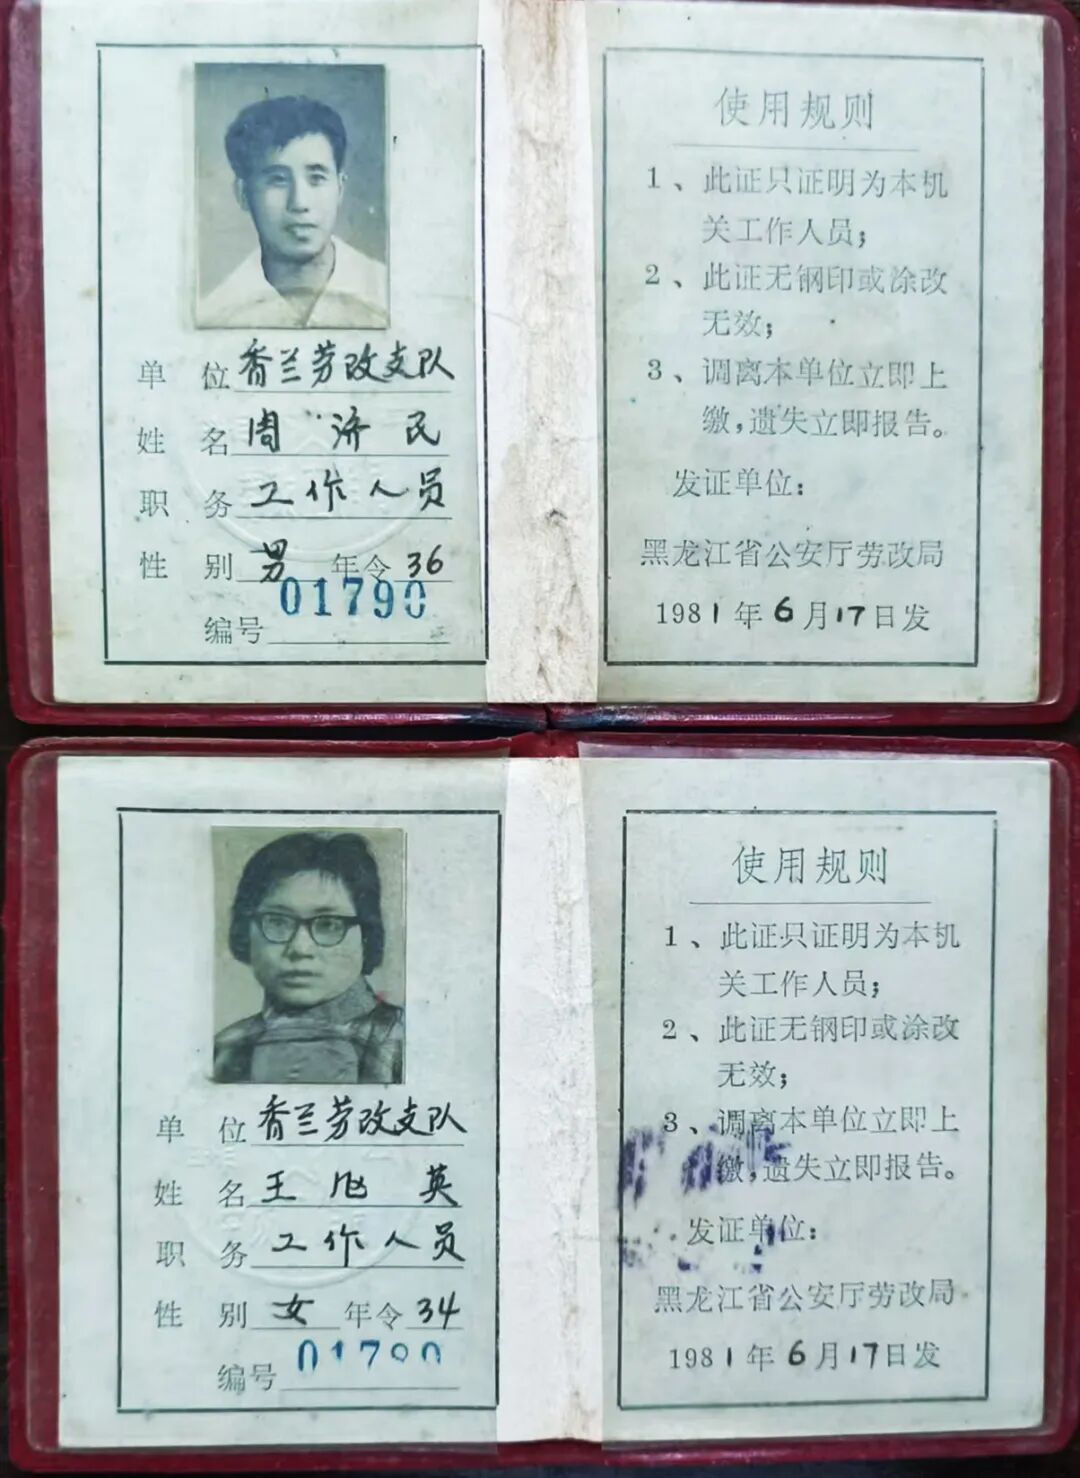 单 位 香兰劳改支队
姓 名 周 济 民
职 务 工作人员
性 别 男 年令 36
编号 01790
使用规则
1、此证只证明为本机
关工作人员;
2、此证无钢印或涂改
无效;
3、调离本单位立即上
缴,遗失立即报告。
发证单位:
黑龙江省公安厅劳改局
1981年6月17日发
单 位 香兰劳改支队
姓 名 王 旭 英
职 务 工作人员
性 别 女 年令 34
编号
使用规则
1、此证只证明为本机
关工作人员;
2、此证无钢印或涂改
无效;
3、调离本单位立即上
缴,遗失立即报告。
发证单位:
黑龙江省公安厅劳改局
1981年6月17日发